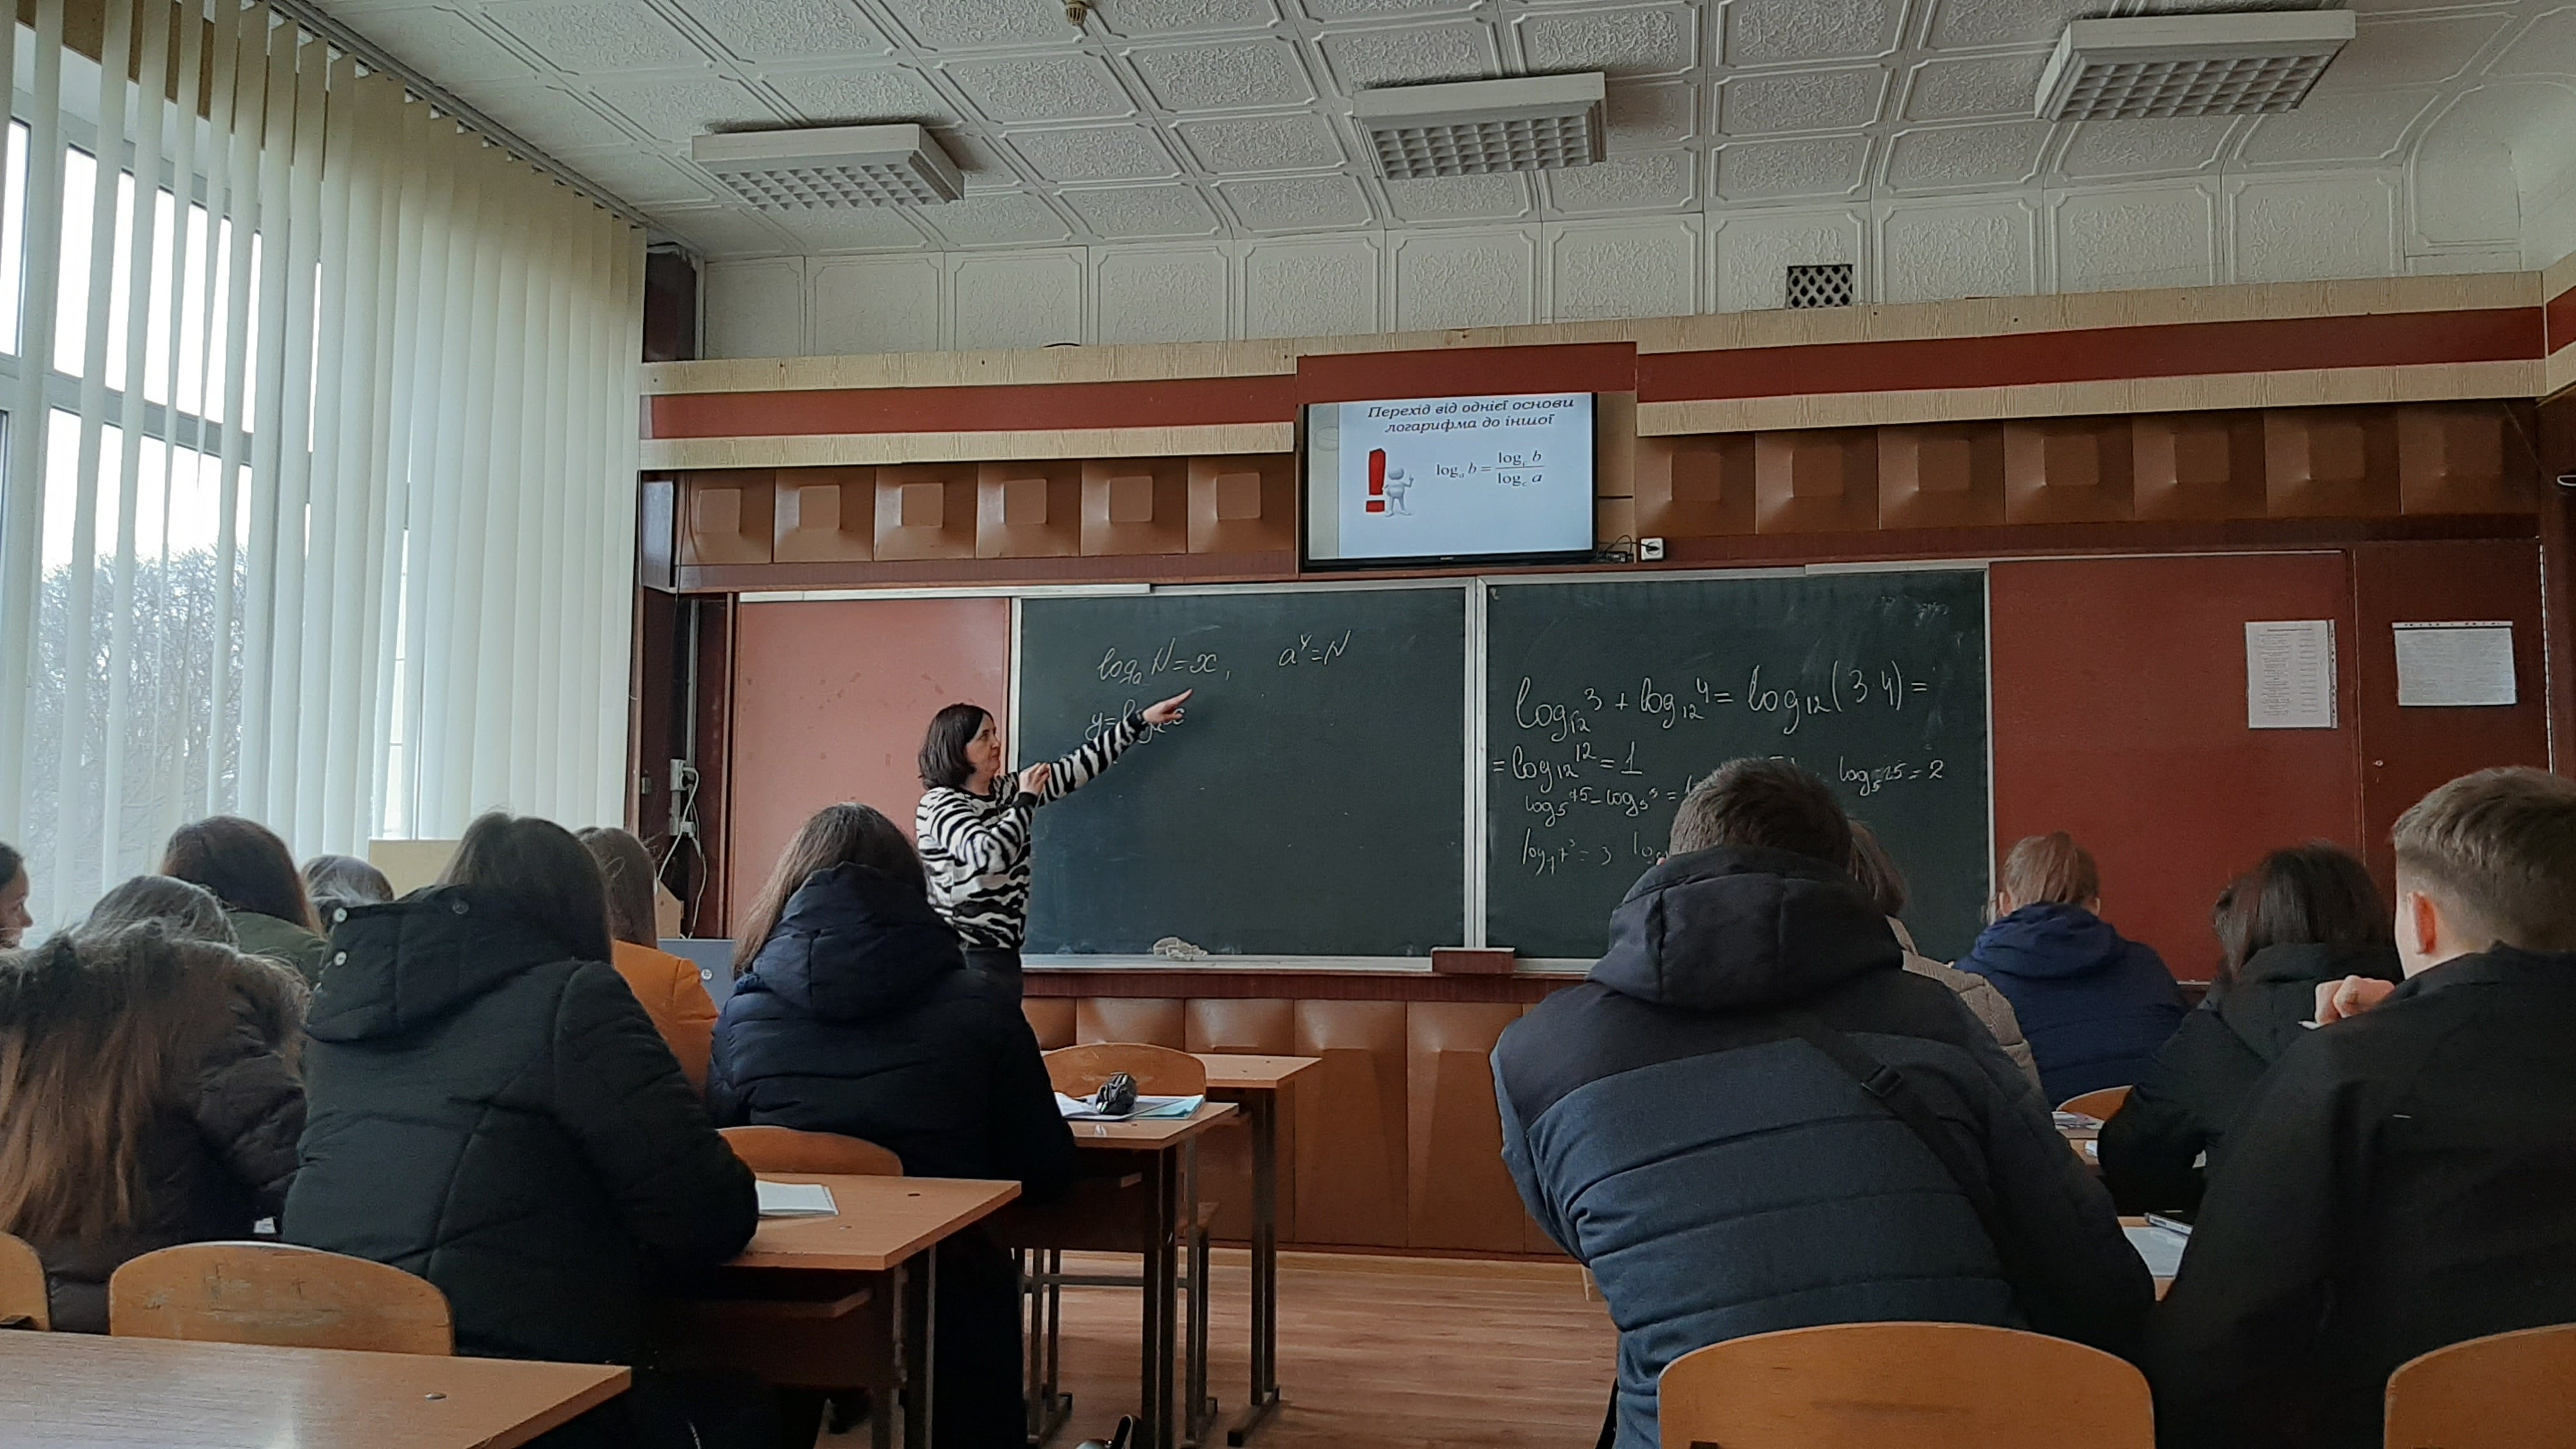 Перехід від однієї основи
логарифма до іншої
logₐ b = log꜀ b / log꜀ a
logₐ N = x, aʸ = N
y =
log₁₂ 3 + log₁₂ 4 = log₁₂ (3 4) =
= log₁₂ 12 = 1
log₅ 75 - log₅ 3 = log₅ 25 = 2
log₇ 7³ = 3